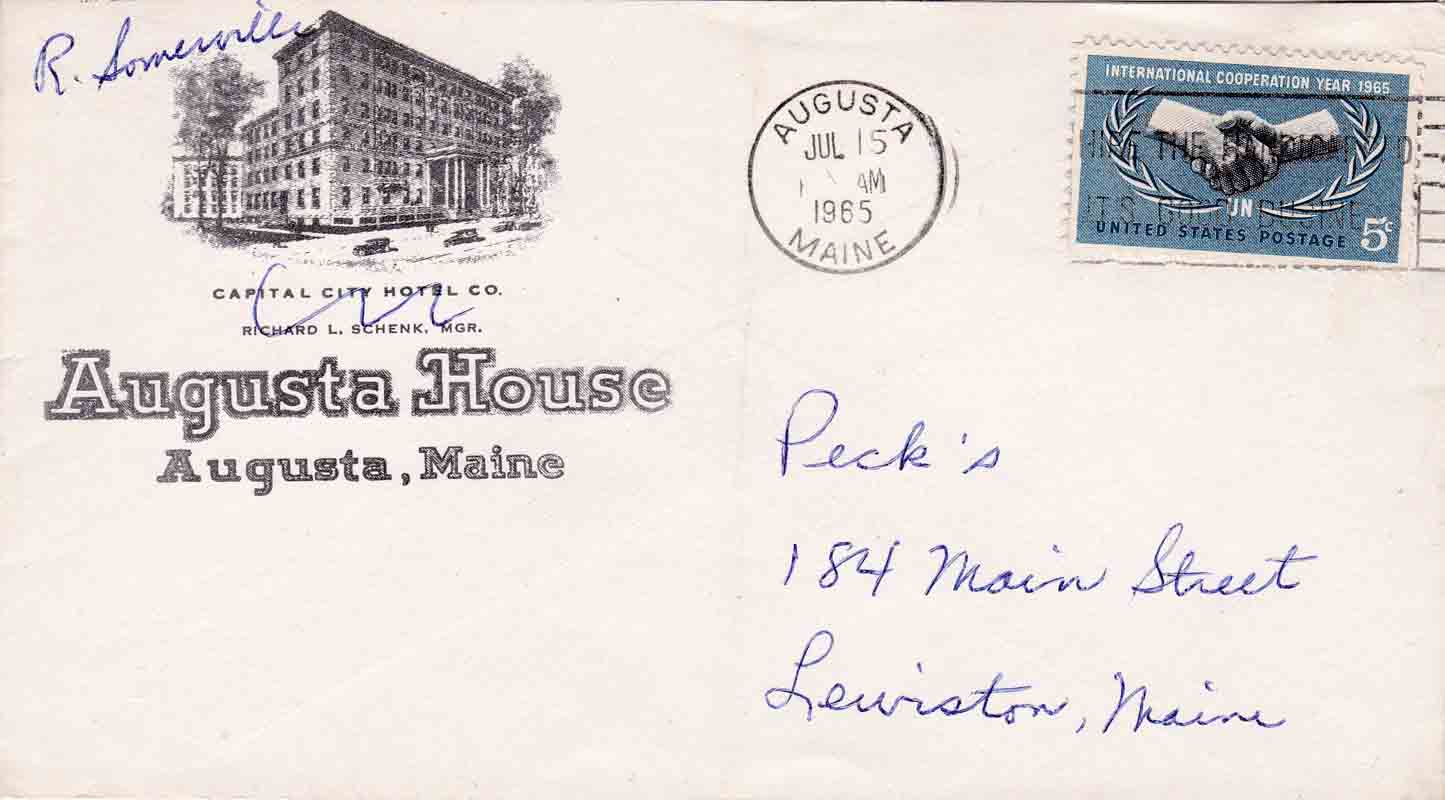 R. Somerville
CAPITAL CITY HOTEL CO.
RICHARD L. SCHENK, MGR.
Augusta House
Augusta, Maine
AUGUSTA
JUL 15
AM
1965
MAINE
INTERNATIONAL COOPERATION YEAR 1965
THE
IT'S
UN
UNITED STATES POSTAGE 5c
Peck's
184 Main Street
Lewiston, Maine